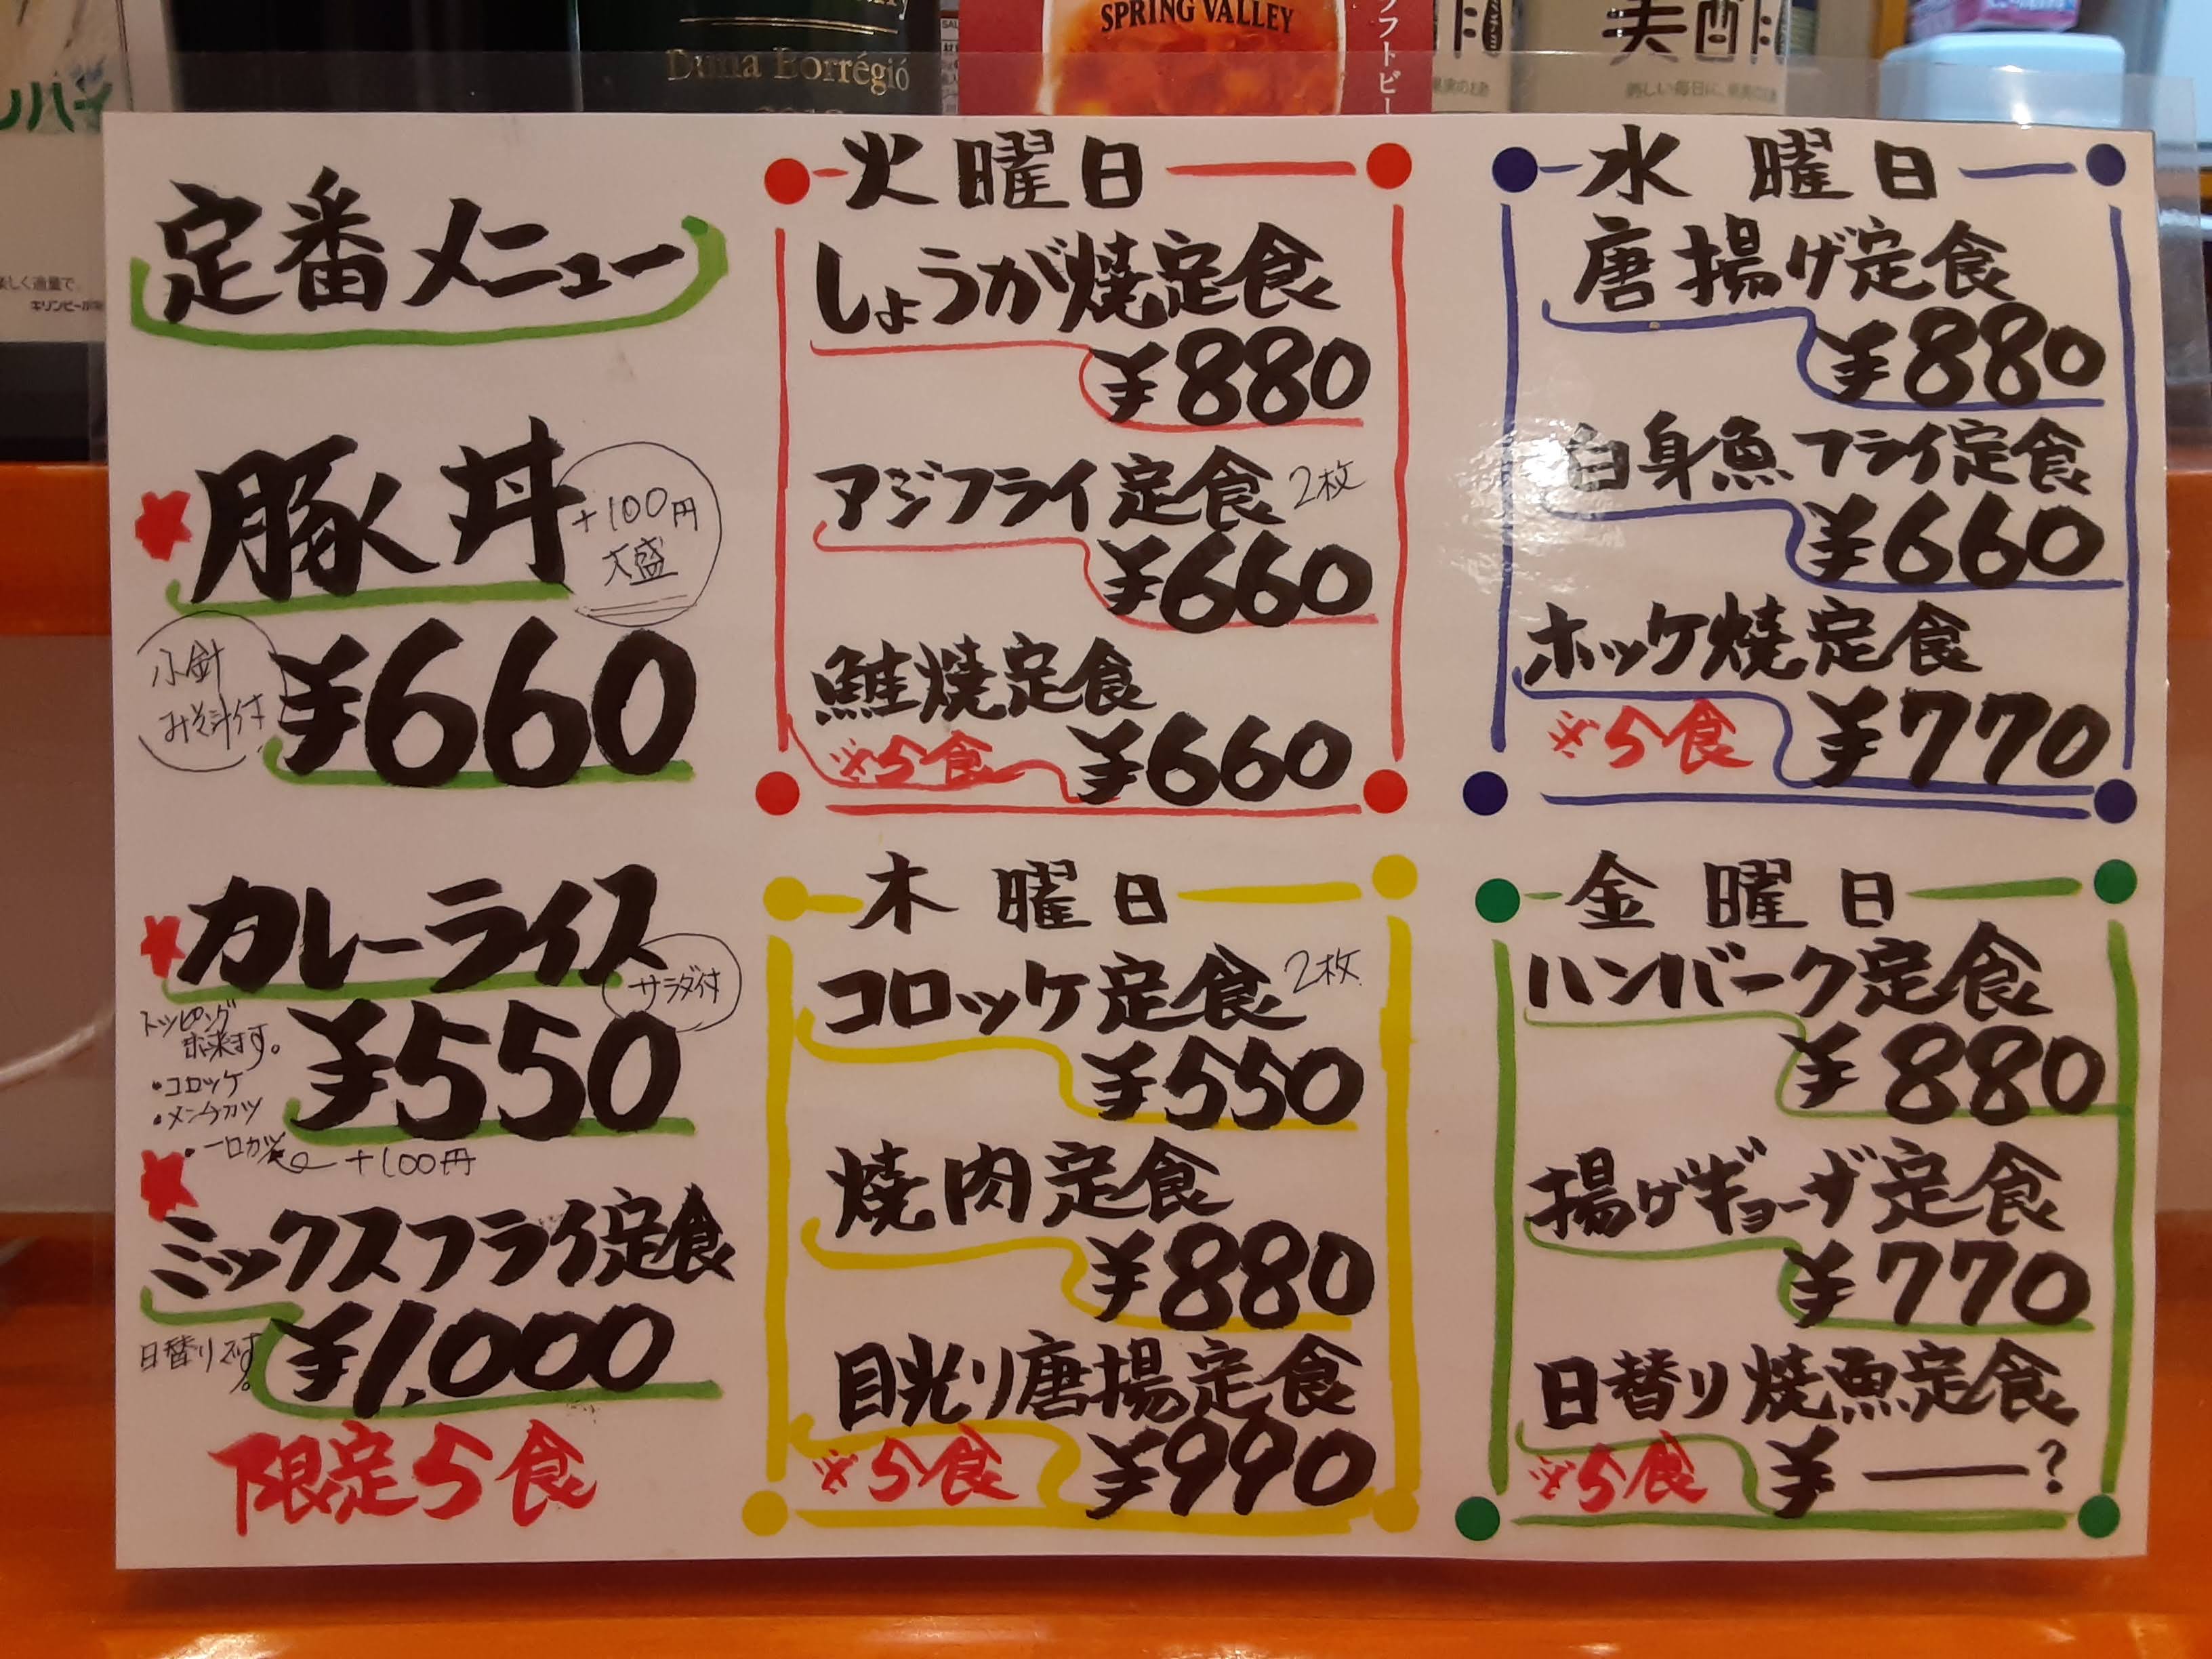 SPRING VALLEY
Duna Borrégió
美酢
定番メニュー
豚丼
+100円
大盛
小鉢
みそ汁付
¥660
カレーライス
サラダ付
¥550
トッピング
出来ます。
・コロッケ
・メンチカツ
・一口カツ
+100円
ミックスフライ定食
¥1,000
日替りです。
限定5食
火曜日
しょうが焼定食
¥880
アジフライ定食 2枚
¥660
鮭焼定食
※5食 ¥660
水曜日
唐揚げ定食
¥880
白身魚フライ定食
¥660
ホッケ焼定食
※5食 ¥770
木曜日
コロッケ定食 2枚
¥550
焼肉定食
¥880
目光り唐揚定食
※5食 ¥990
金曜日
ハンバーク定食
¥880
揚げギョーザ定食
¥770
日替り焼魚定食
※5食 ¥ー?